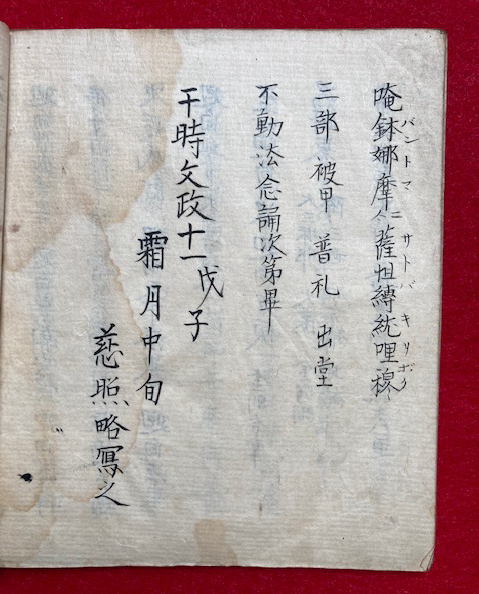 唵鉢娜摩二合薩怛縛紇哩穆
バントマ サトバキリボク
三部 被甲 普礼 出堂
不動法念誦次第畢
干時文政十一戊子
霜月中旬
慈照略寫之